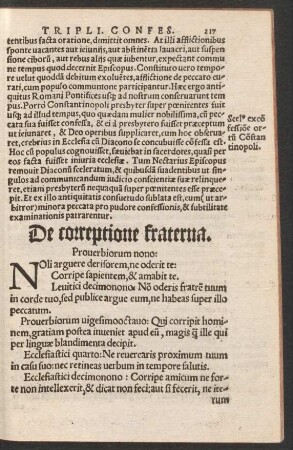 TRIPLI. CONFES. 217
tentibus facta oratione, dimittit omnes. At illi afflictionibus
sponte vacantes aut ieiunijs, aut abstinētia lauacri, aut suspen
sione ciborū, aut rebus alijs quæ iubentur, expectant commu
ne tempus quod decernit Episcopus. Constituto vero tempo
re uelut quoddā debitum exoluētes, afflictione de peccato cu
rati, cum populo communionē participantur. Hæc ergo anti-
quitus Romani Pontifices usq; ad nostrum conseruarunt tem
pus. Porrò Constantinopoli presbyter super pœnitentes fuit
usq; ad illud tempus, quo quædam mulier nobilissima, cū pec
cata sua fuisset confessa, & ei à presbytero fuisset præceptum
ut ieiunaret, & Deo operibus supplicaret, cum hoc obserua-
ret, crebrius in Ecclesia cū Diacono se concubuisse cōfessa est.
Hoc cū populus cognouisset, sæuiebat in sacerdotes, quasi per
eos facta fuisset iniuria ecclesiæ. Tum Nectarius Episcopus
remouit Diaconū sceleratum, & quibusdā suadentibus ut sin
gulos ad communicandum iudicio conscientiæ suæ relinque-
ret, etiam presbyterū nequaquā super pœnitentes esse præce-
pit. Et ex illo antiquitatis consuetudo sublata est, cum (ut ar
bitror) minora peccata pro pudore confessionis, & subtilitate
examinationis patrarentur.
Scel⁹ ex cō
fessiōe or
tū Cōstan
tinopoli.
De correptione fraterna.
Prouerbiorum nono:
Noli arguere derisorem, ne oderit te:
Corripe sapientem, & amabit te.
Leuitici decimonono: Nō oderis fratrē tuum
in corde tuo, sed publice argue eum, ne habeas super illo
peccatum.
Prouerbiorum uigesimooctauo: Qui corripit homi
nem, gratiam postea inueniet apud eū, magis q̄ ille qui
per linguæ blandimenta decipit.
Ecclesiastici quarto: Ne reuerearis proximum tuum
in casu suo: nec retineas uerbum in tempore salutis.
Ecclesiastici decimonono: Corripe amicum ne for-
te non intellexerit, & dicat non feci: aut si fecerit, ne ite-
rum